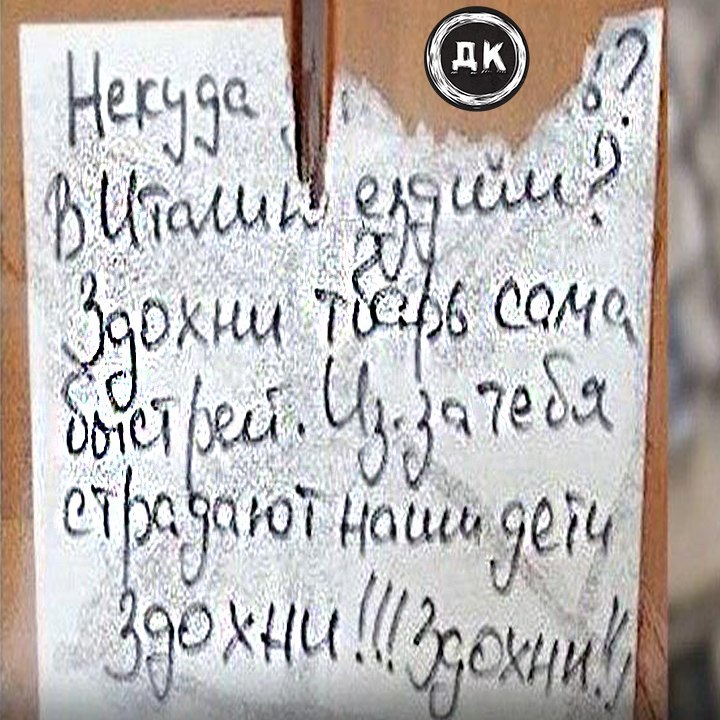 ДК
Некуда
В Италии ездили?
Здохни тварь сама
быстрей. Из-за тебя
страдают наши дети
Здохни!!! Здохни!!